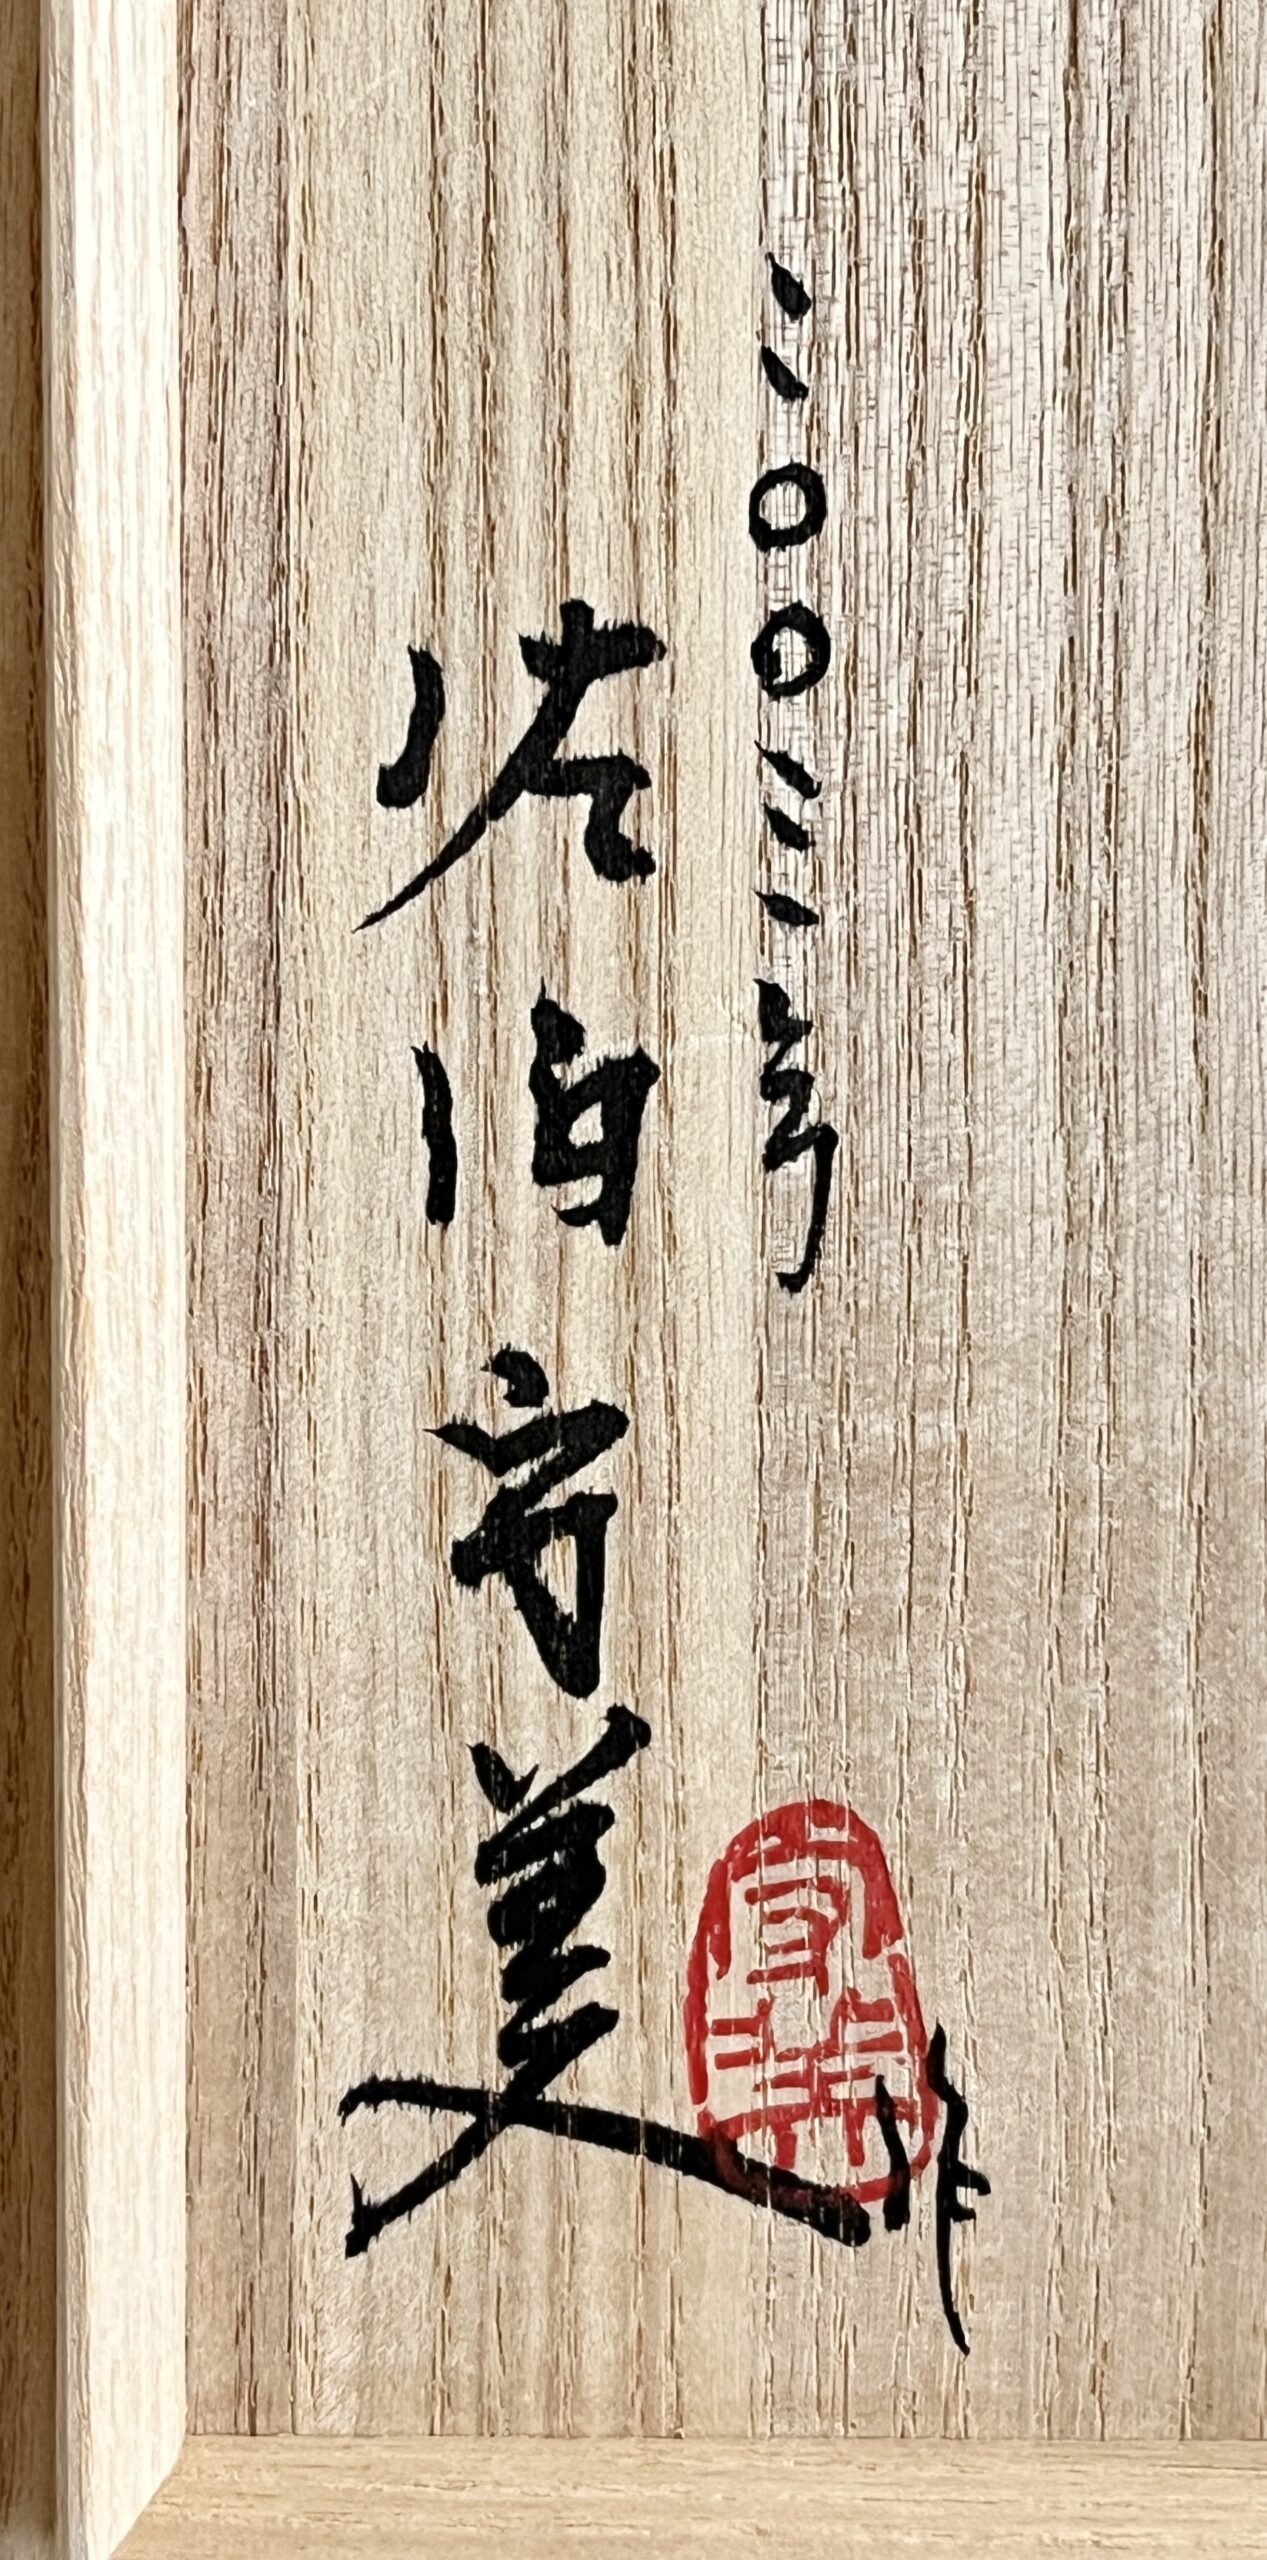 二〇〇三年
佐伯守美作
守美